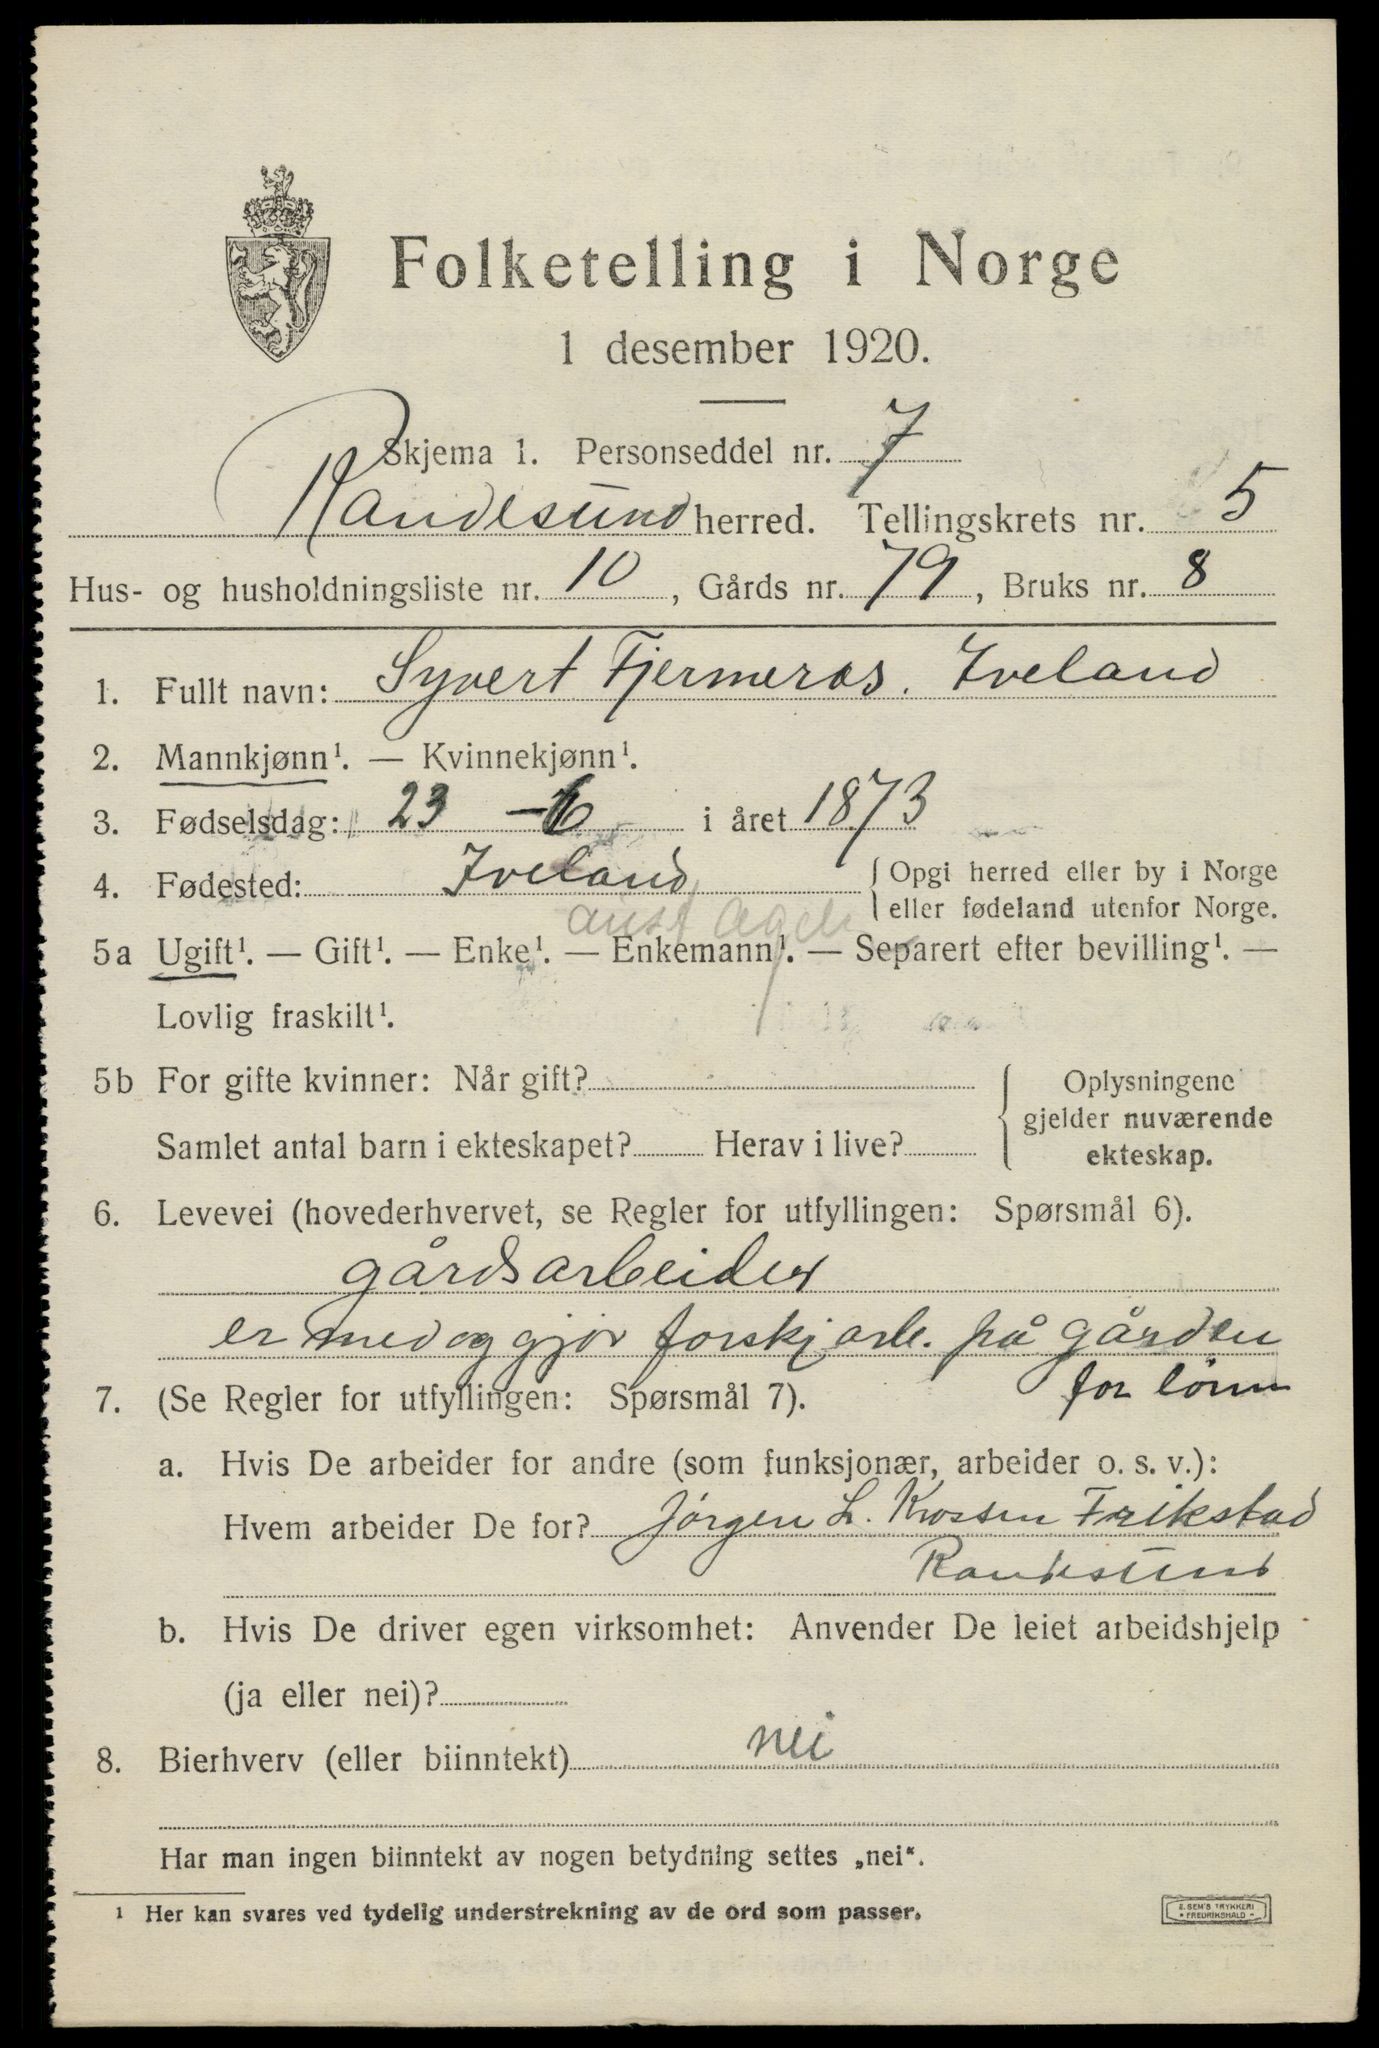 Folketelling i Norge
1 desember 1920.
Skjema 1. Personseddel nr. 7
Randesund herred. Tellingskrets nr. 5
Hus- og husholdningsliste nr. 10, Gårds nr. 79, Bruks nr. 8
1. Fullt navn: Syvert Fjermeros. Iveland
2. Mannkjønn¹. — Kvinnekjønn¹.
3. Fødselsdag: 23 - 6 i året 1873
4. Fødested: Iveland { Opgi herred eller by i Norge
eller fødeland utenfor Norge.
aust Agder
5a Ugift¹. — Gift¹. — Enke¹. — Enkemann¹. — Separert efter bevilling¹. —
Lovlig fraskilt¹.
5b For gifte kvinner: Når gift? { Oplysningene
gjelder nuværende
Samlet antal barn i ekteskapet? Herav i live? ekteskap.
6. Levevei (hovederhvervet, se Regler for utfyllingen: Spørsmål 6).
gårdsarbeider
er med og gjør forskj arb. på gården
for lønn
7. (Se Regler for utfyllingen: Spørsmål 7).
a. Hvis De arbeider for andre (som funksjonær, arbeider o. s. v.):
Hvem arbeider De for? Jørgen L. Krossen Frikstad
Randesund
b. Hvis De driver egen virksomhet: Anvender De leiet arbeidshjelp
(ja eller nei)?
8. Bierhverv (eller biinntekt) nei
Har man ingen biinntekt av nogen betydning settes „nei“.
¹ Her kan svares ved tydelig understrekning av de ord som passer.
E. SEM'S TRYKKERI
• FREDRIKSHALD •